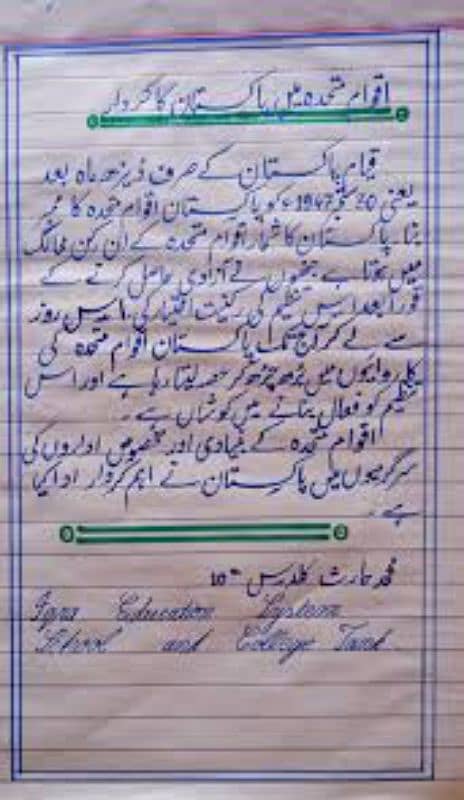 اقوام متحدہ میں پاکستان کا کردار
قیام پاکستان کے صرف ڈیڑھ ماہ بعد
یعنی 30 ستمبر 1947ء کو پاکستان اقوام متحدہ کا ممبر
بنا۔ پاکستان کا شمار اقوام متحدہ کے ان رکن ممالک
میں ہوتا ہے جنہوں نے آزادی حاصل کرنے کے
فوراً بعد اس تنظیم کی رکنیت اختیار کی۔ اس روز
سے لے کر آج تک پاکستان اقوام متحدہ کی
کاروائیوں میں بڑھ چڑھ کر حصہ لیتا رہا ہے اور اس
تنظیم کو فعال بنانے میں کوشاں ہے۔
اقوام متحدہ کے بنیادی اور مخصوص اداروں کی
سرگرمیوں میں پاکستان نے اہم کردار ادا کیا
ہے۔
محمد حارث کلاس 10th
Iqra Education System
School and College Tank